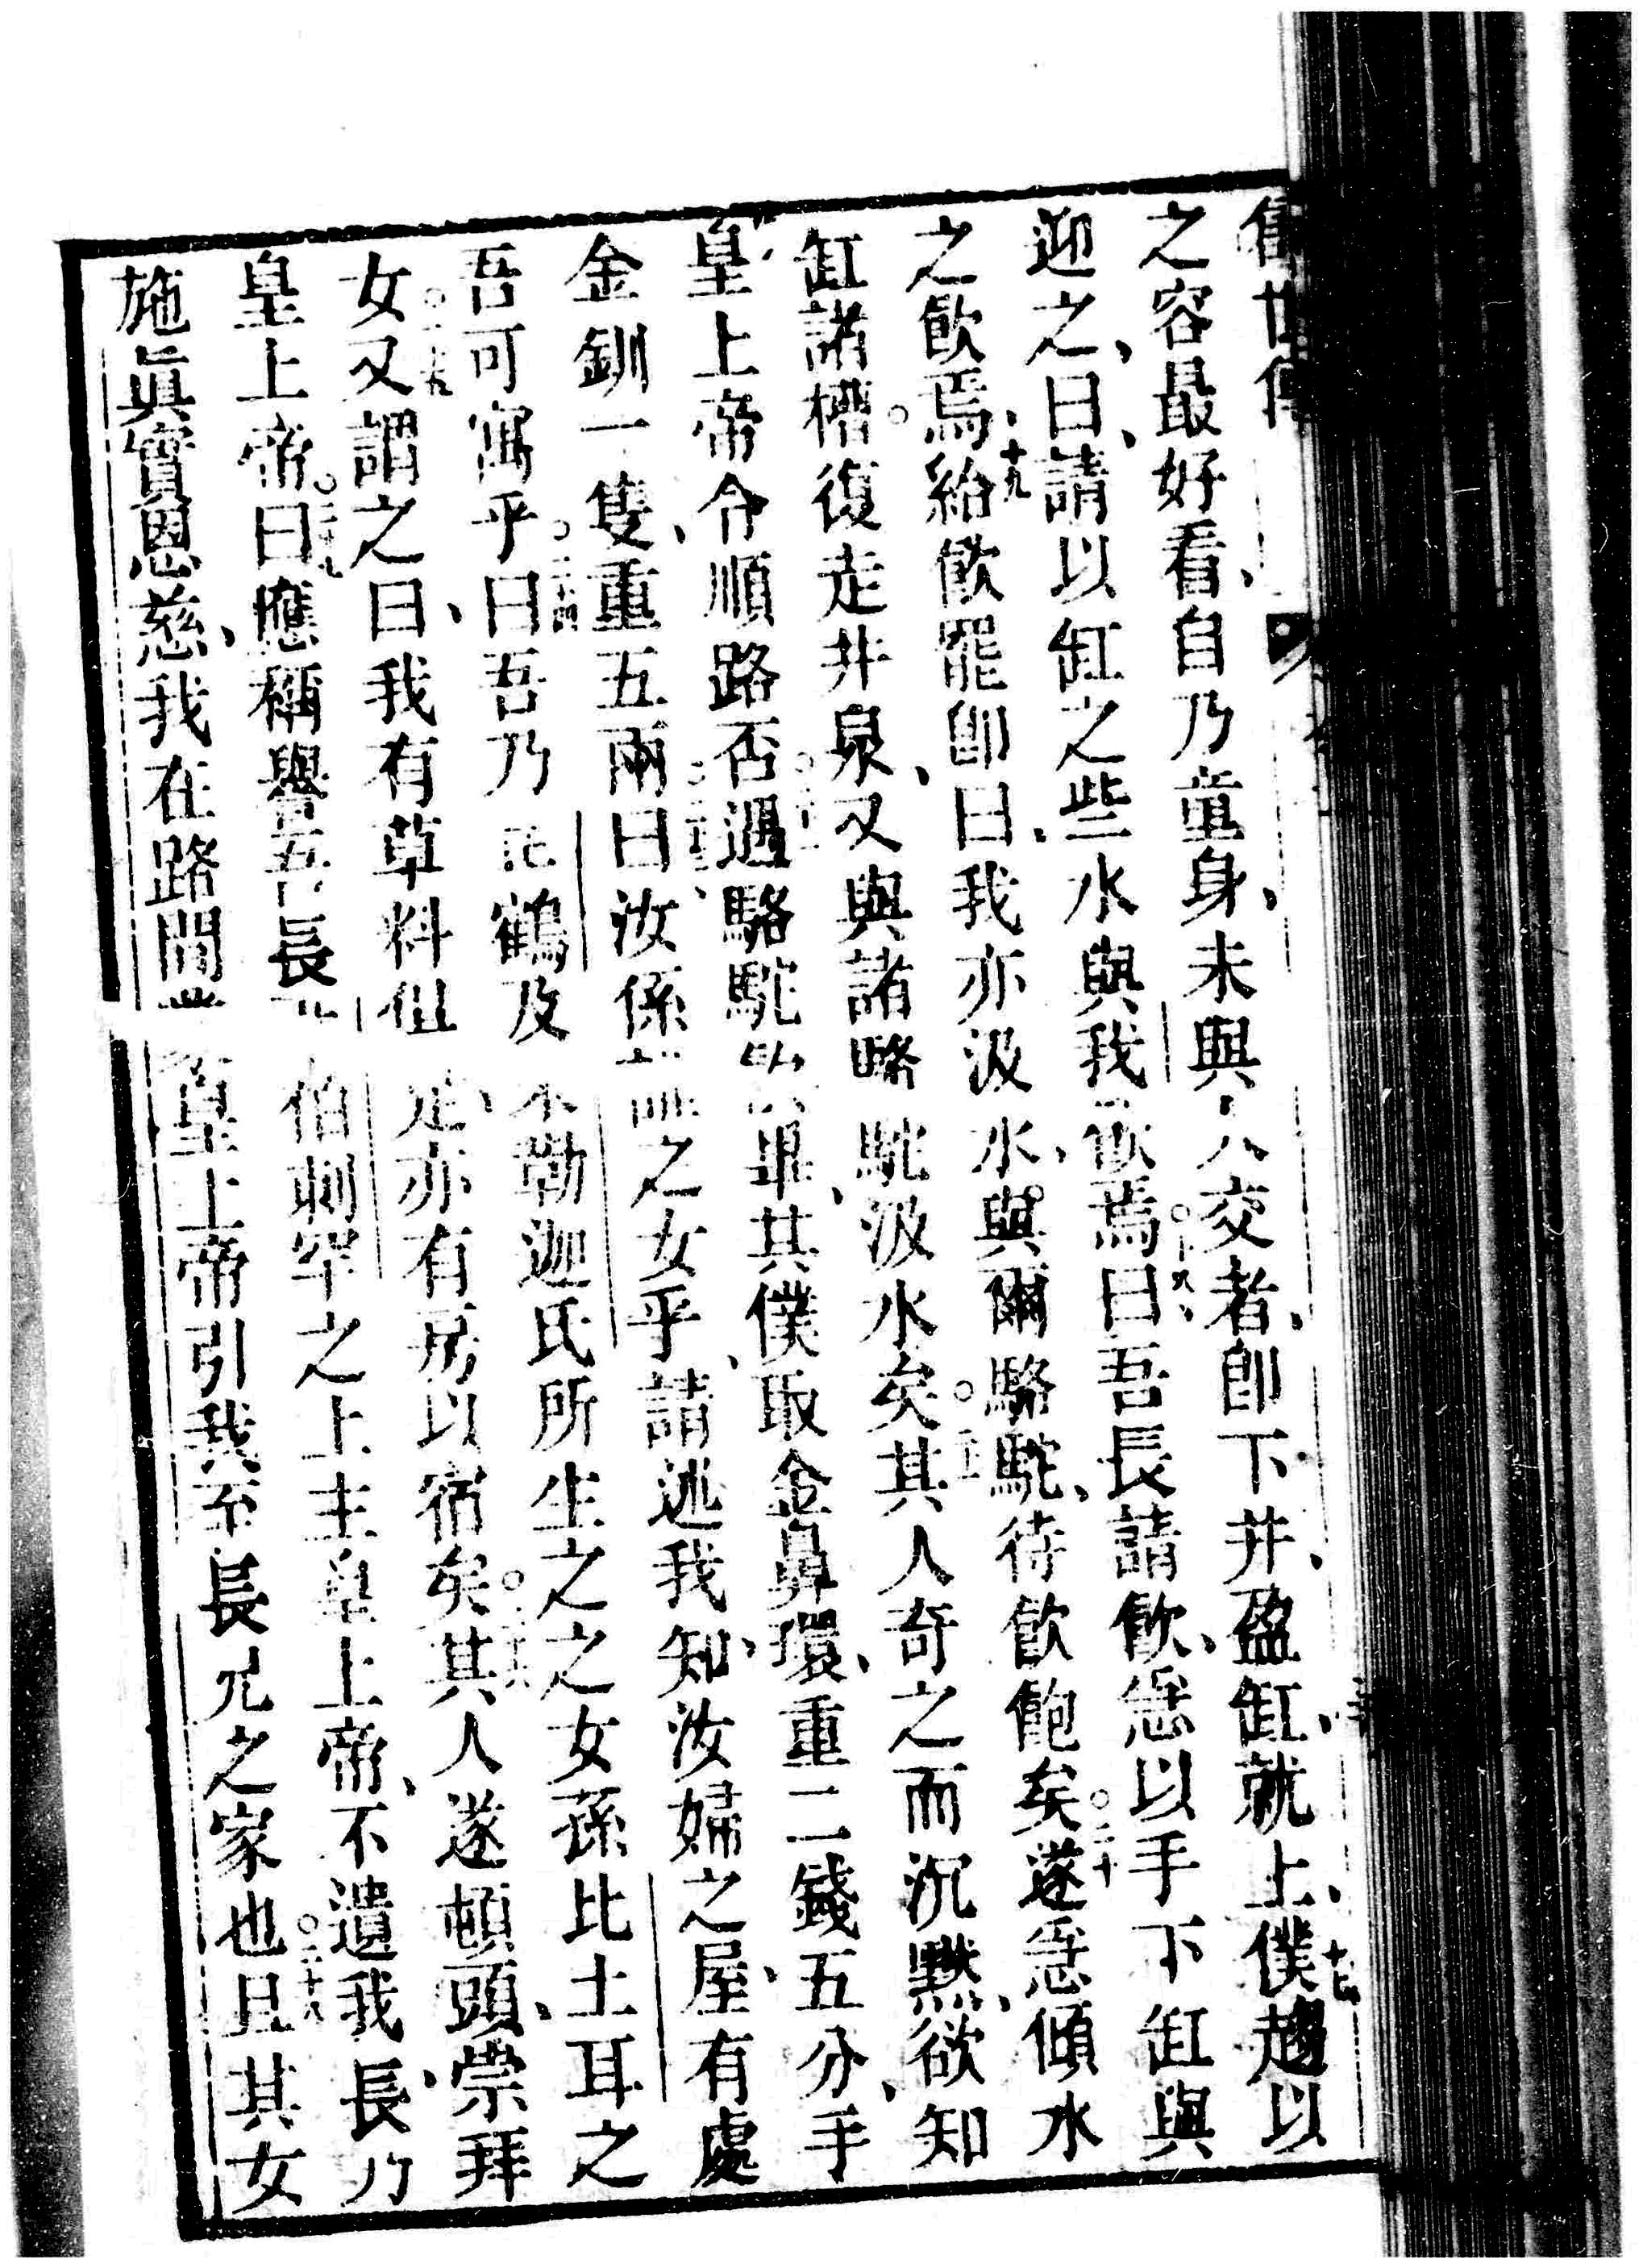 之容最好看、自乃童身、未與人交者、即下井、盈缸、就上、十七僕趨以
迎之、曰、請以缸之些水與我飲焉○十八、曰吾長請飲、急以手下缸與
之飲焉、十九給飲罷即曰、我亦汲水、與爾駱駝、待飲飽矣○二十遂急傾水
缸諸槽○復走井泉、又與諸駱駝汲水矣○二十一其人奇之而沉默、欲知
皇上帝令順路否○二十二遇駱駝飲畢、其僕取金鼻環、重二錢五分、手
金釧一隻、重五兩○二十三曰汝係誰之女乎、請述我知、汝婦之屋、有處
吾可寓乎○二十四曰吾乃 鶴及 勒迦氏所生之之女孫比土耳之
女○二十五又謂之曰、我有草料但足、亦有房以宿矣○二十六其人遂頓頭、崇拜
皇上帝○二十七曰應稱譽吾長 伯剌罕之上主皇上帝、不遺我長、乃
施眞實恩慈、我在路間 皇上帝引我至長兄之家也○二十八且其女